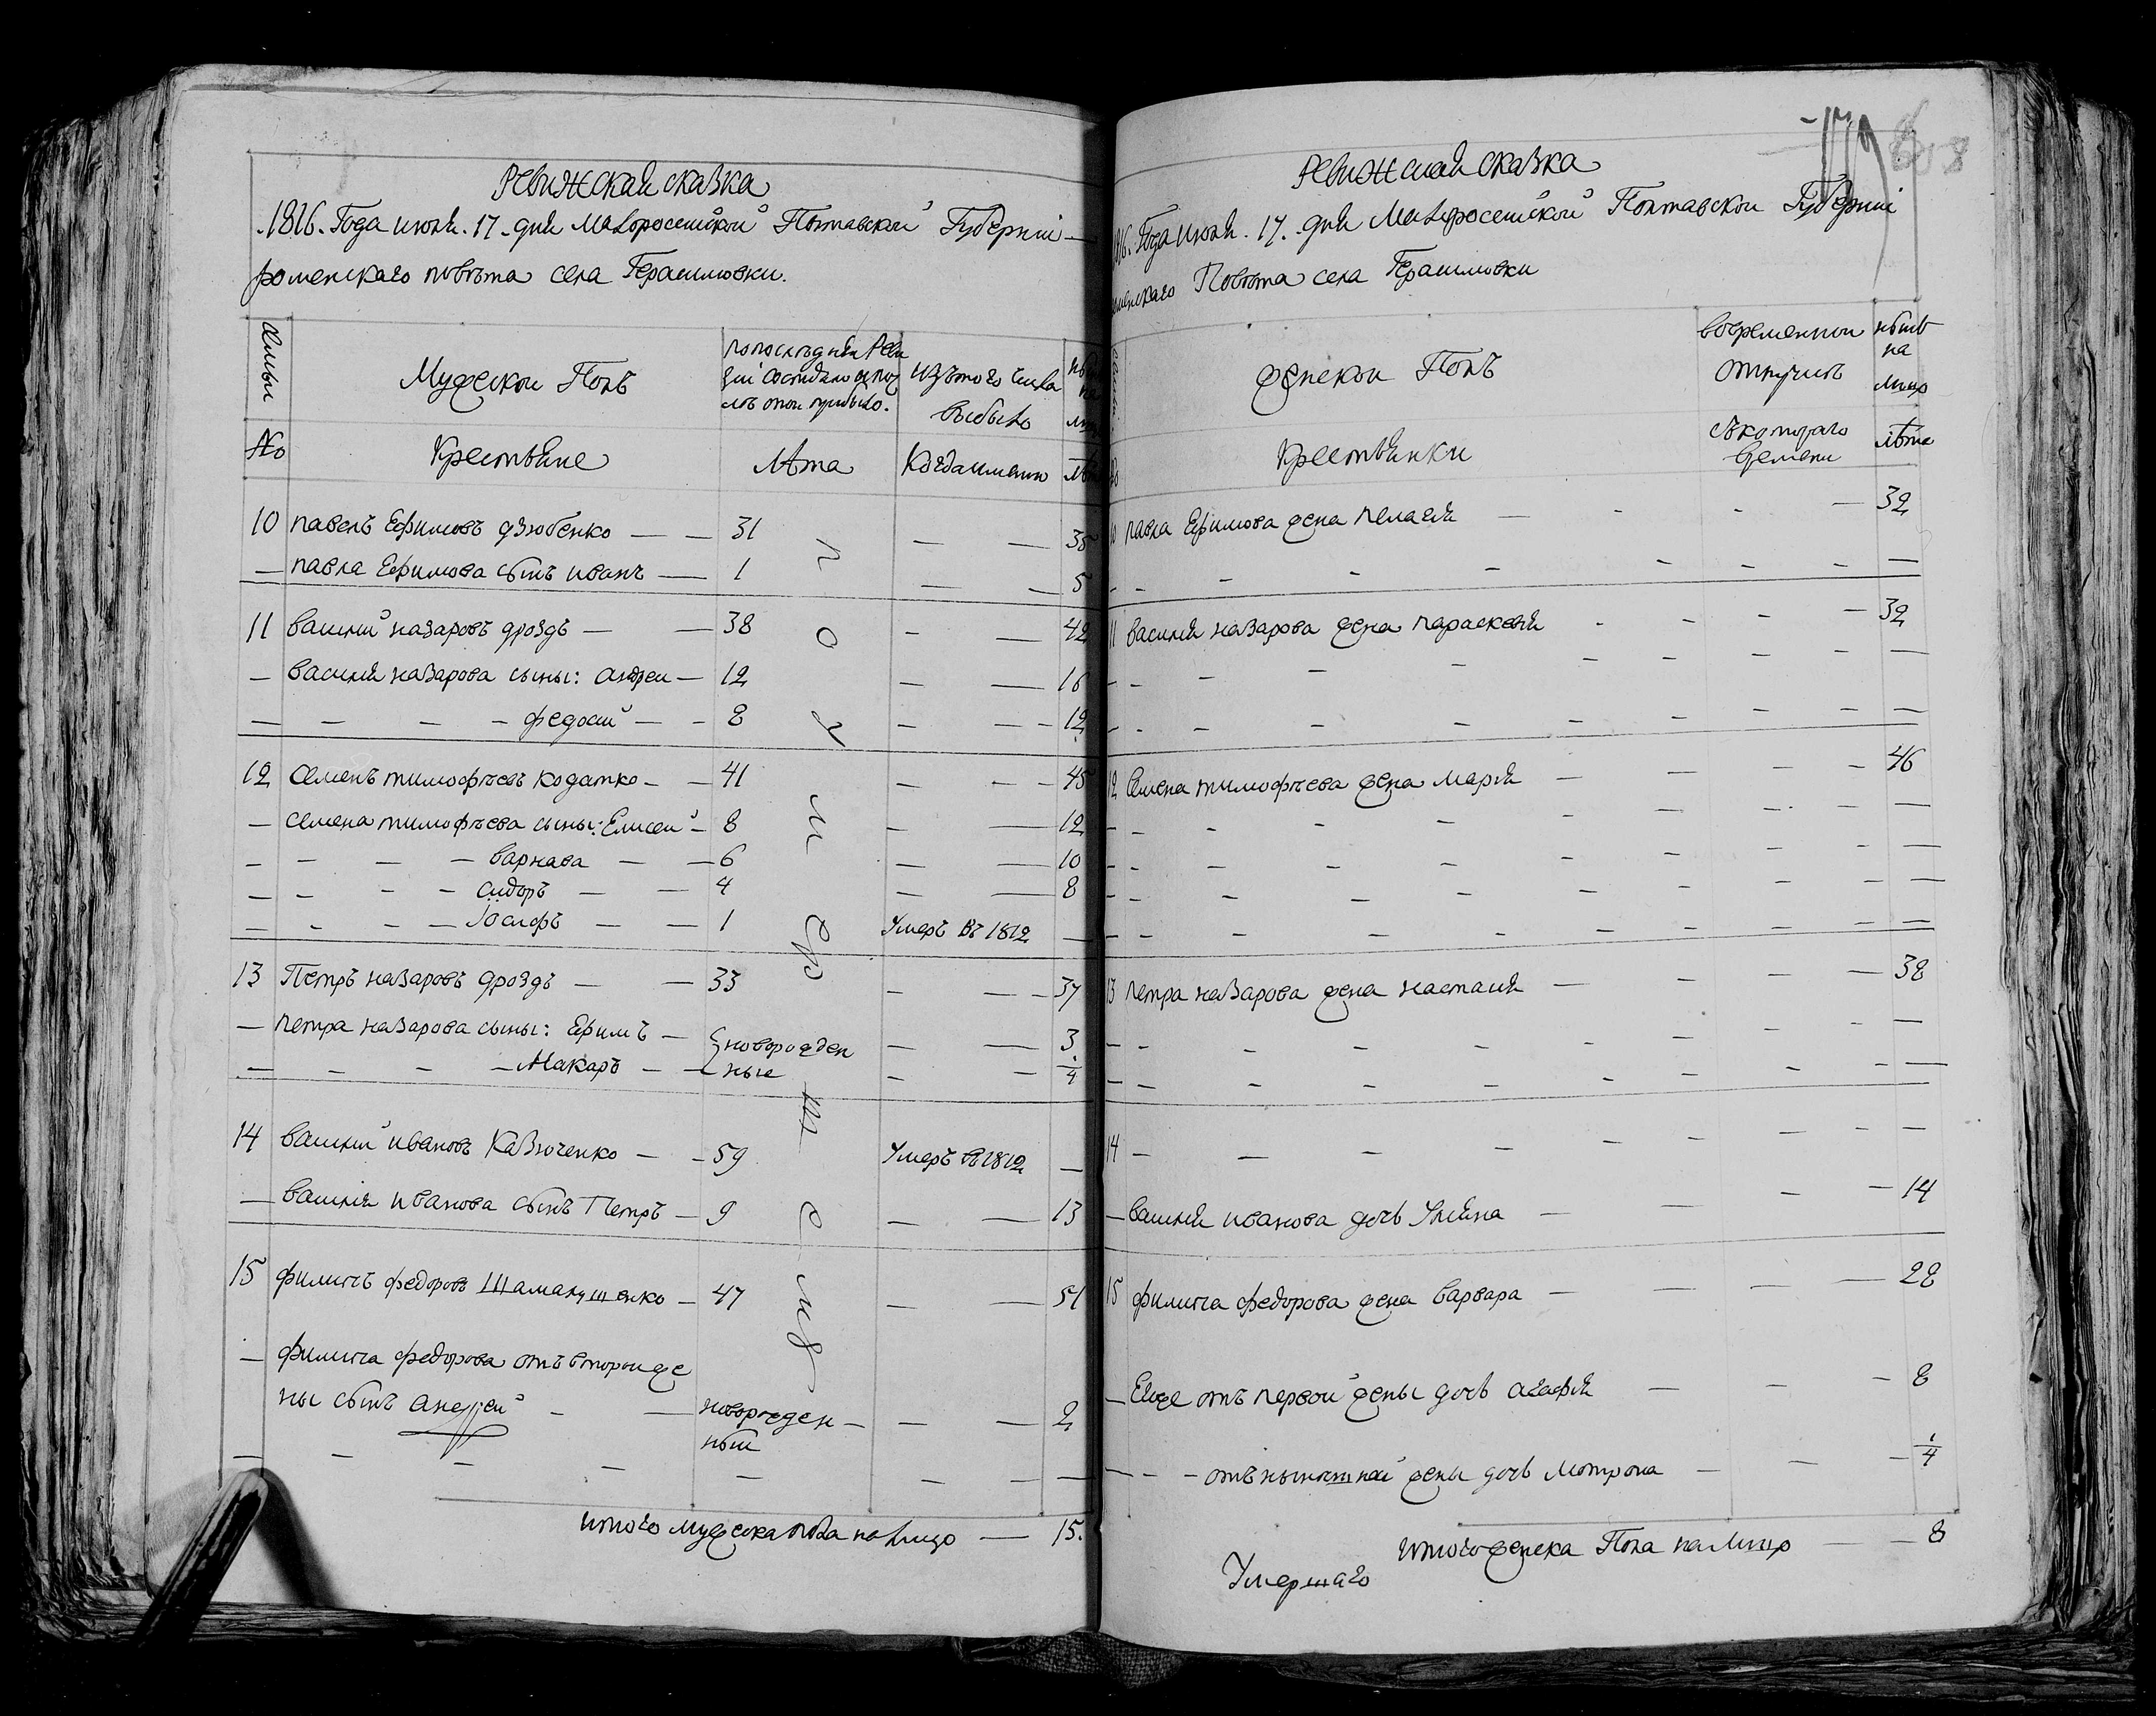 Ревижская сказка
1816. Года июля. 17. дня Малоросейской Полтавской Губерніи
роменскаго повѣта села Герасимовки.
Мужескои Полъ
попоследнѣи Реви
зіи состояло и по
слѣ тои прибыло.
изътого числа
выбыло
№ Крестьяне Лѣта Когда именно
10 павелъ Ефимовъ дзюбенко — — 31 — — 35
— павла Ефимова сынъ иванъ — 1 — — 5
11 василий назаровъ дроздъ — — 38 - — 42
— василия назарова сыны: андреи — 12 — — 16
— — — - федосий — - 8 — — - 12
12 Семенъ тимофѣевъ кодатко - — 41 — — - 45
— семена тимофѣева сыны: Елисей - 8 — — 12
— — — — варнава — — 6 — — 10
— — - — сидоръ — — 4 — — 8
— - — — Іосифъ — — 1 Умеръ въ 1812 —
13 Петръ назаровъ дроздъ — — 33 — — - 37
— петра назарова сыны: Ефимъ — новорожден — — 3
— — — — Макаръ — — ные — — 1/4
14 василий ивановъ Казюченко — - 59 Умеръ въ 1812 —
— василия иванова сынъ Петръ — 9 — — 13
15 филипъ федоровъ Шаманушенко — 47 — — 51
— филипа федорова отъ второи же
ны сынъ андрей - — новорожден — — — 2
ный
— — — — — — — —
итого мужеска пола налицо — 15.
Ревижская сказка
1816. Года июля. 17. дня Малоросейской Полтавскои Губерніи
Повѣта села Герасимовки
женскои Полъ
вовременнои
отлучкѣ
нынѣ
на
лицо
Крестьянки
съкотораго
времени
лѣта
павла Ефимова жена пелагея — - - — 32
11 василия назарова жена параскевия - - - — 32
12 Семена тимофѣева жена мария — — — - 46
13 петра назарова жена настасия — - — — 38
14 — — — — — — — —
— василия иванова дочь Улияна — — - — 14
15 филипа федорова жена варвара — — — — 28
— Еще отъ первой жены дочь агафия — - - 8
— - - отъ нынешней жены дочь мотрона — — — 1/4
итого женска Пола налицо — — 8
Умершаго